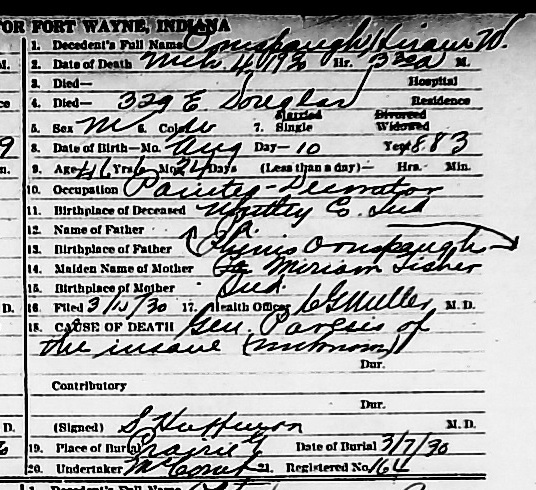 OR FORT WAYNE, INDIANA
1. Decedent's Full Name Ormspaugh Hiram W.
M. 2. Date of Death Mch 4, 1930 Hr. 332a M.
3. Died— Hospital
4. Died— 329 E Douglas Residence
Married Divorced
5. Sex M 6. Color W 7. Single Widowed
9 8. Date of Birth—Mo. Aug Day—10 Year 1883
n. 9. Age 46 Yrs 6 Mo. 24 Days (Less than a day)— Hrs. Min.
10. Occupation Painter-Decorator
11. Birthplace of Deceased Whitley Co. Ind
12. Name of Father
13. Birthplace of Father Ormspaugh
14. Maiden Name of Mother Miriam Fisher
15. Birthplace of Mother Ind.
D. 16. Filed 17. Health Officer M. D.
18. CAUSE OF DEATH Gen. Paresis of
the insane (unknown)
Dur.
Contributory
Dur.
D. (Signed) S Huffman M. D.
19. Place of Burial Prairie G Date of Burial 3/7/30
20. Undertaker McComb 21. Registered No. 164
1. Decedent's Full Name